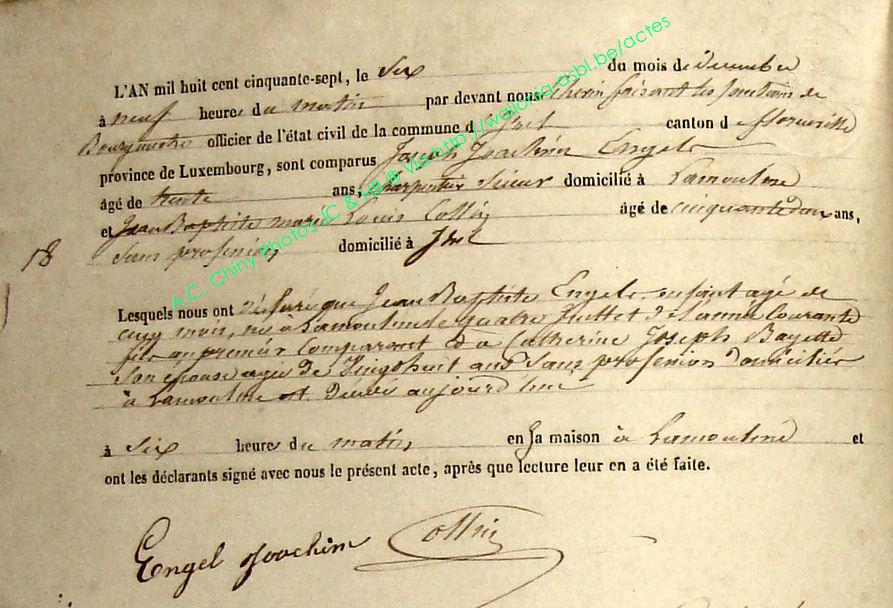 L'AN mil huit cent cinquante-sept, le six du mois de décembre
à neuf heures du matin par devant nous échevin faisant les fonctions de
Bourgmestre officier de l'état civil de la commune d'Izel canton d Florenville
province de Luxembourg, sont comparus Joseph Joachim Engels
âgé de trente ans, charpentier sieur domicilié à Lamouline
et Jean Baptiste marie Louis Collin âgé de cinquante deux ans,
18 sans profession domicilié à Izel
Lesquels nous ont déclaré que Jean Baptiste Engels enfant agé de
cinq mois, né à Lamouline le quatre Juillet de l'année Courante
fils au premier Comparant et à Catherine Joseph Bayette
son épouse agée de Vingt huit ans sans profession domiciliés
à Lamouline est décédé aujourd'hui
à six heures du matin en sa maison à Lamouline et
ont les déclarants signé avec nous le présent acte, après que lecture leur en a été faite.
Engel Joachim Collin
A.C. Chiny Photos JC &
http://wellonia-asbl.be/actes